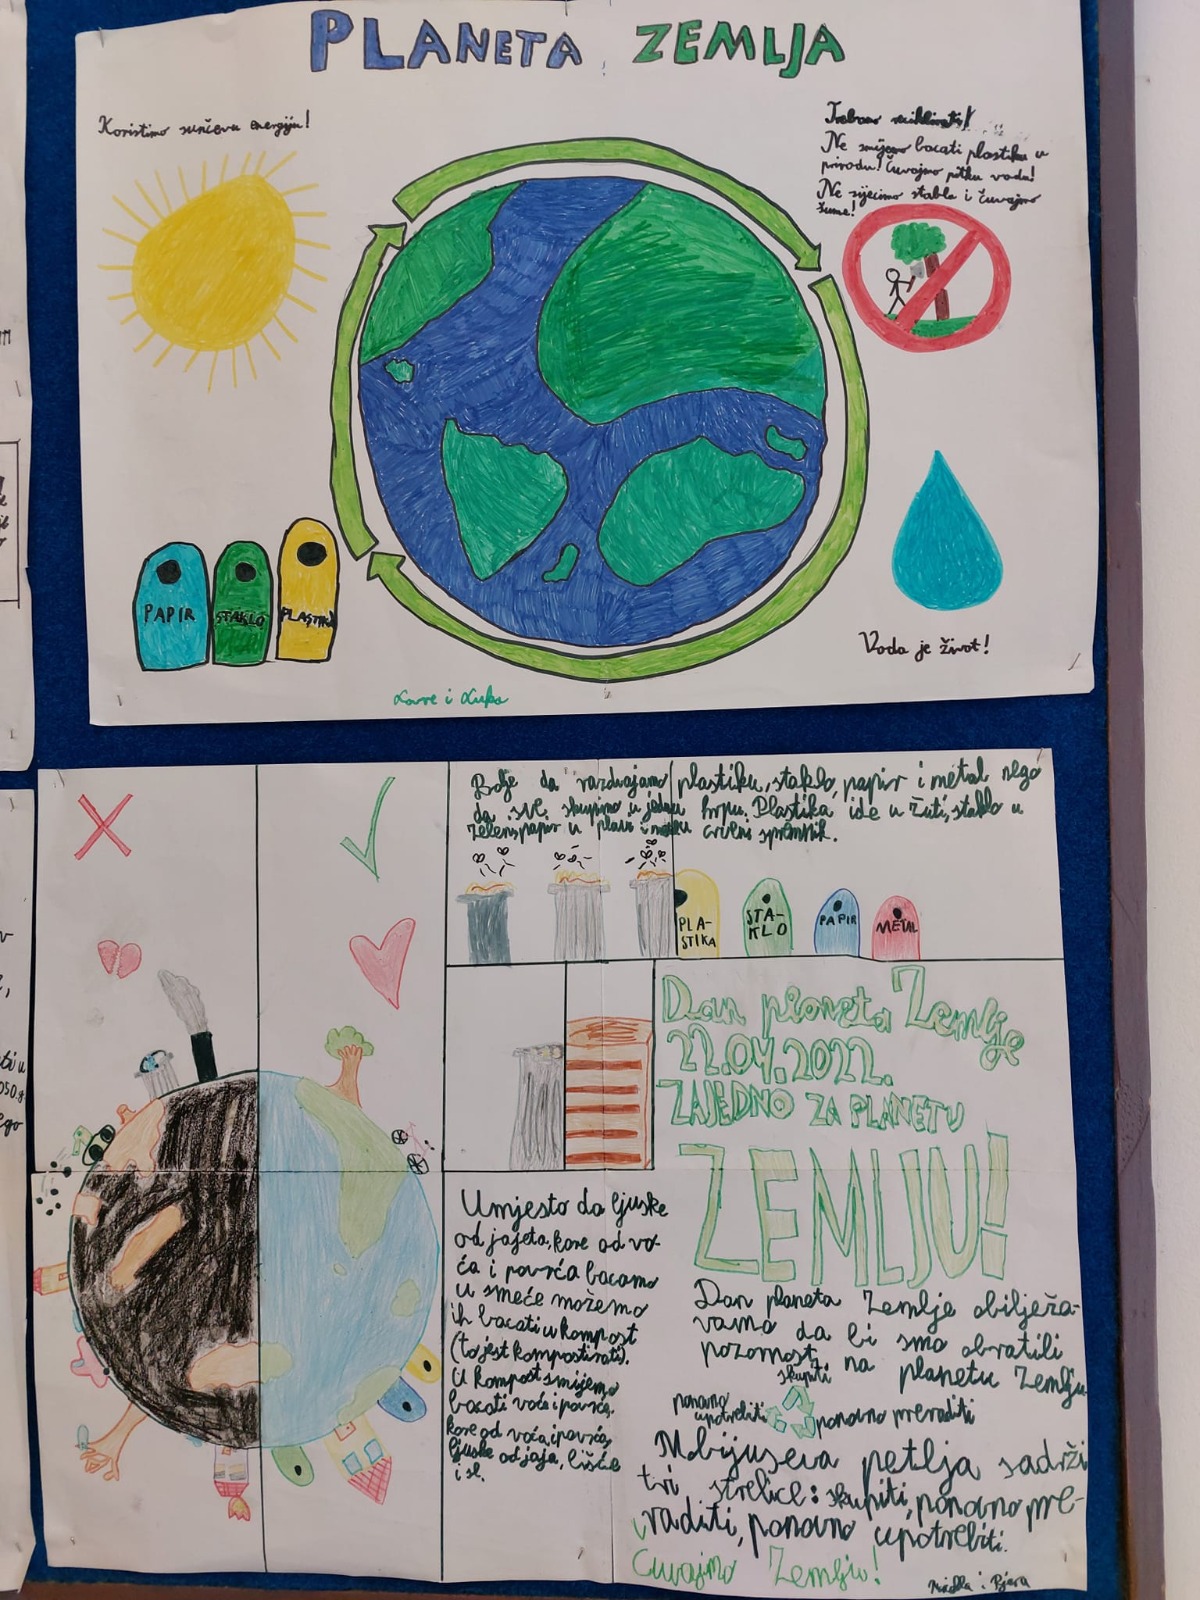 PLANETA ZEMLJA
Koristimo sunčevu energiju!
Trebamo reciklirati!
Ne smijemo bacati plastiku u
prirodu! Čuvajmo pitku vodu!
Ne sijecimo stabla i čuvajmo
šume!
PAPIR
STAKLO
PLASTIKA
Voda je život!
Lovre i Luka
Bolje da razdvajamo plastiku, staklo, papir i metal nego
da sve skupimo u jednu hrpu. Plastika ide u žuti, staklo u
zeleni, papir u plavi i metal u crveni spremnik.
PLA-
STIKA
STA-
KLO
PAPIR
METAL
Dan planeta Zemlje
22.04.2022.
ZAJEDNO ZA PLANETU
ZEMLJU!
Umjesto da ljuske
od jajeta, kore od vo-
ća i povrća bacamo
u smeće možemo
ih bacati u kompost
(to jest kompostirati).
U kompost smijemo
bacati voće i povrće,
kore od voća i povrća,
ljuske od jaja, lišće
i sl.
Dan planeta Zemlje obilježa-
vamo da bi smo obratili
pozornost na planetu Zemlju
skupiti
ponovno
upotrebiti
ponovno preraditi
Mobijuseva petlja sadrži
tri strelice: skupiti, ponovno pre-
raditi, ponovno upotrebiti.
Čuvajmo Zemlju!
i